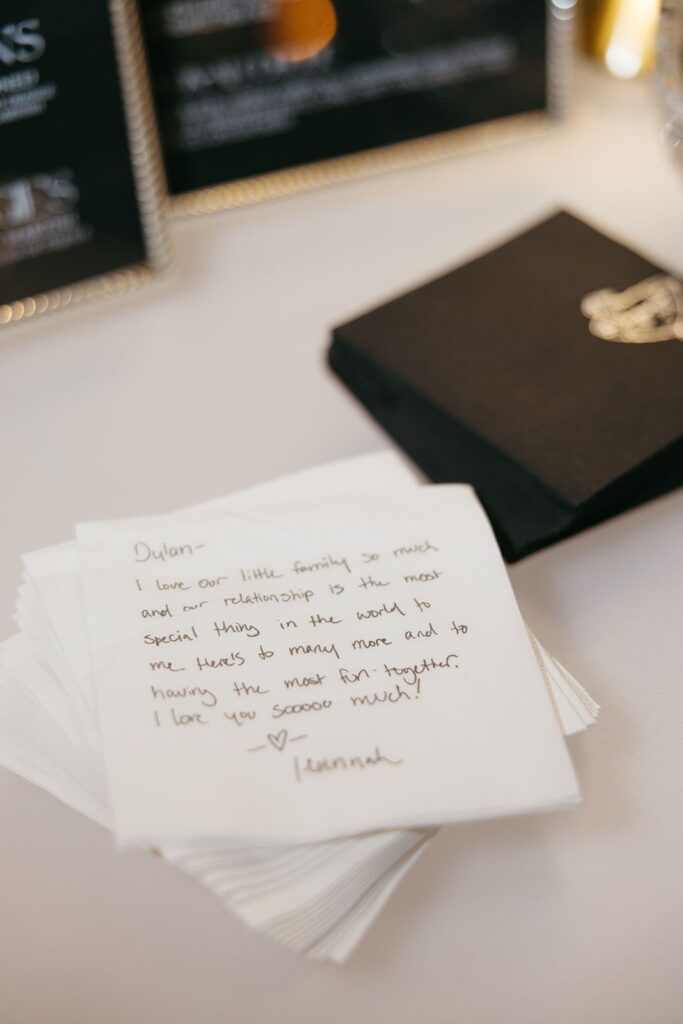 Dylan-
I love our little family so much
and our relationship is the most
special thing in the world to
me. Here's to many more and to
having the most fun together.
I love you sooooo much!